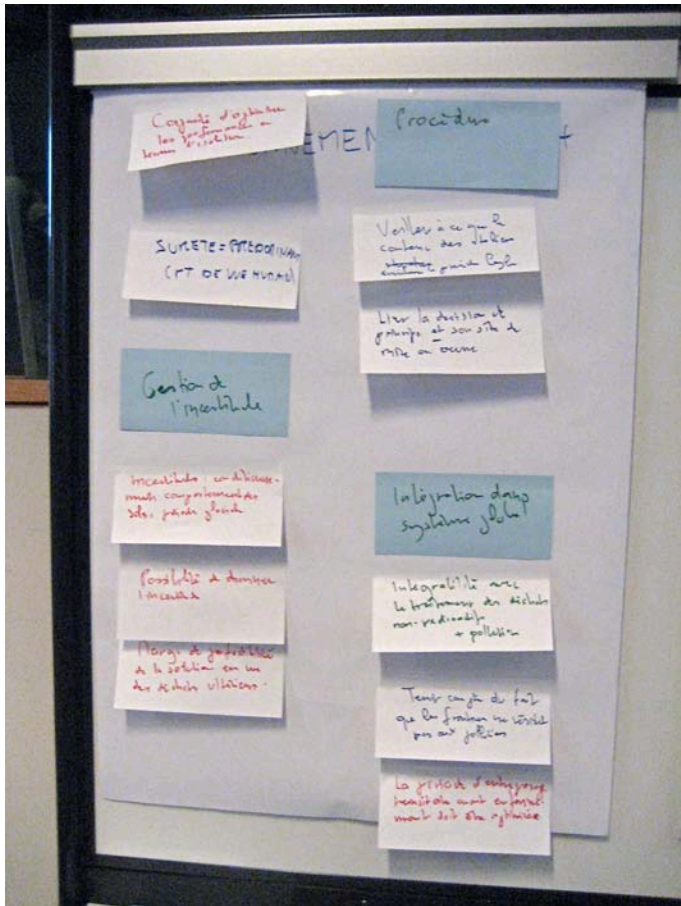 Capacité d'optimiser
les performances en
NEMEN
SURETE = PREDOMINANT
(PT DE VUE HUMAIN)
Gestion de
l'incertitude
Incertitudes : conditionne-
ments comportement des
sols, période glaciaire
Possibilité de diminuer
l'incertitude
Marge de perfectibilité
de la solution en vue
des déchets ultérieurs.
Procédure
Veiller à ce que le
contenu des ateliers
Lier la décision de
principe et son site de
mise en œuvre
Intégration dans
système global
Intégrabilité avec
le traitement des déchets
non-radioactifs
+ pollution
Tenir compte du fait
que les frontières ne résistent
pas aux pollutions
La période d'entreposage
transitoire avant enfouisse-
ment doit être optimisée